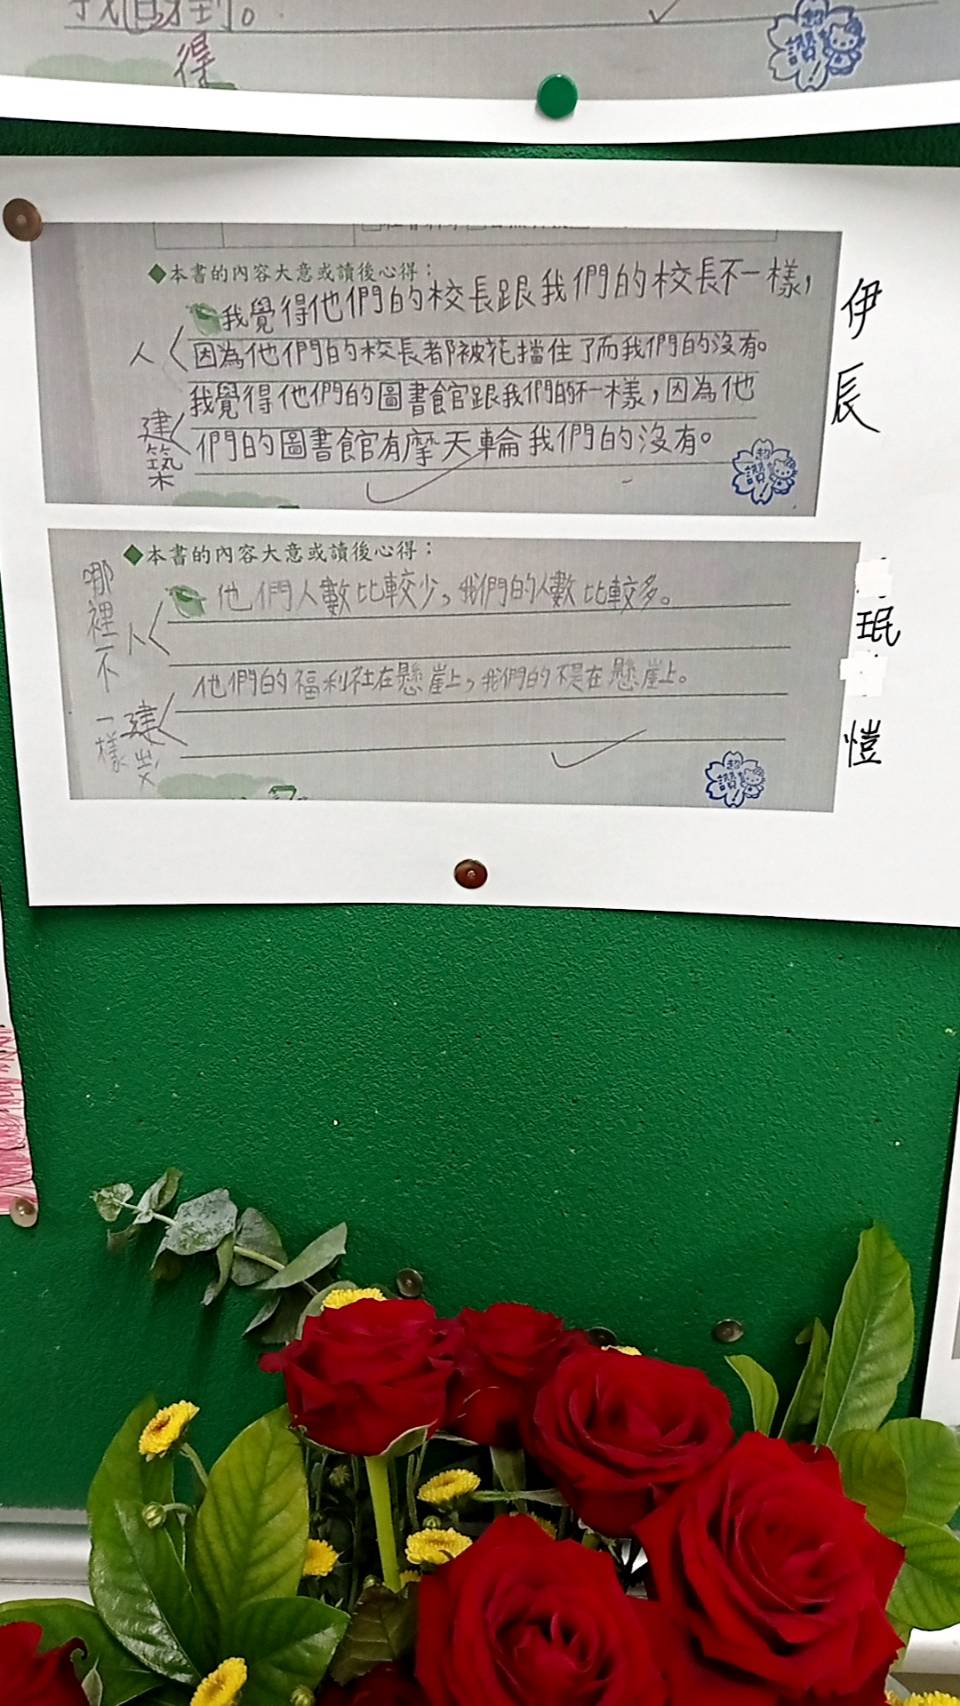 得
讚!
◆本書的內容大意或讀後心得：
我覺得他們的校長跟我們的校長不一樣，
人
因為他們的校長都被花擋住了而我們的沒有。
我覺得他們的圖書館跟我們的不一樣，因為他
建築
們的圖書館有摩天輪我們的沒有。
超讚!
伊辰
◆本書的內容大意或讀後心得：
哪裡不一樣
他們人數比較少，我們的人數比較多。
人
他們的福利社在懸崖上，我們的不是在懸崖上。
建
超讚!
珉
愷